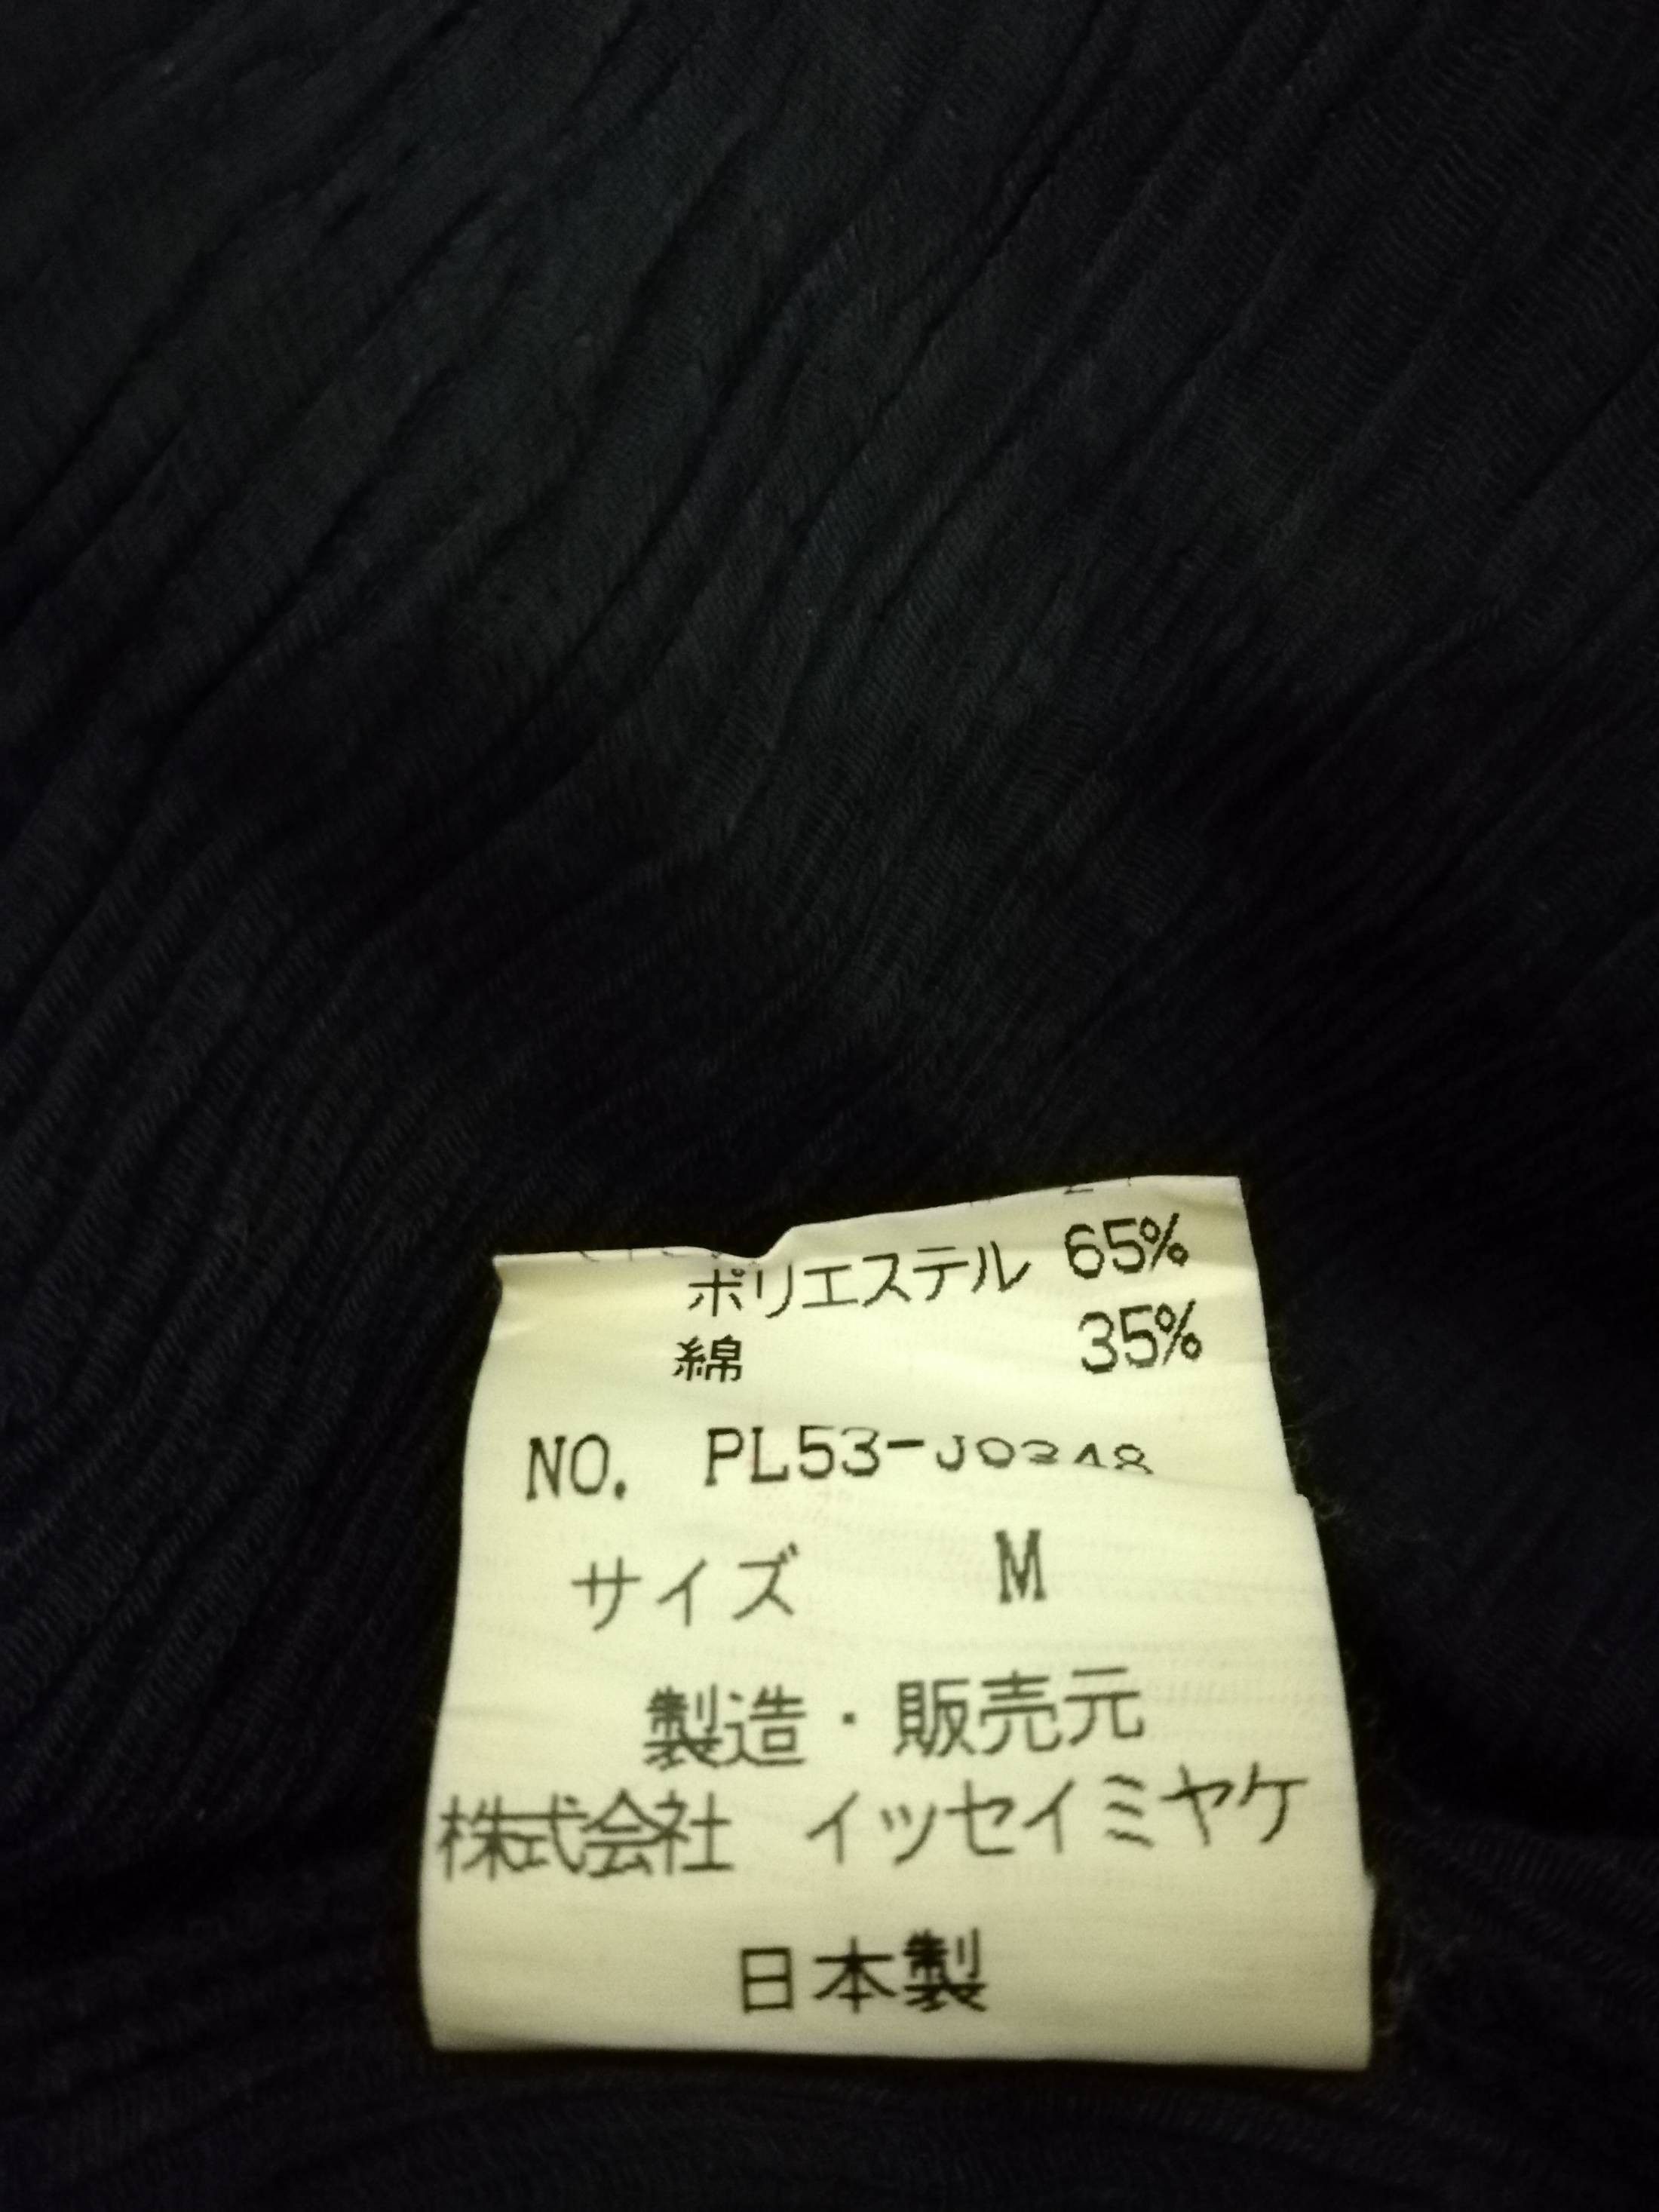 ポリエステル 65%
綿 35%
NO. PL53-J0348
サイズ M
製造・販売元
株式会社 イッセイミヤケ
日本製